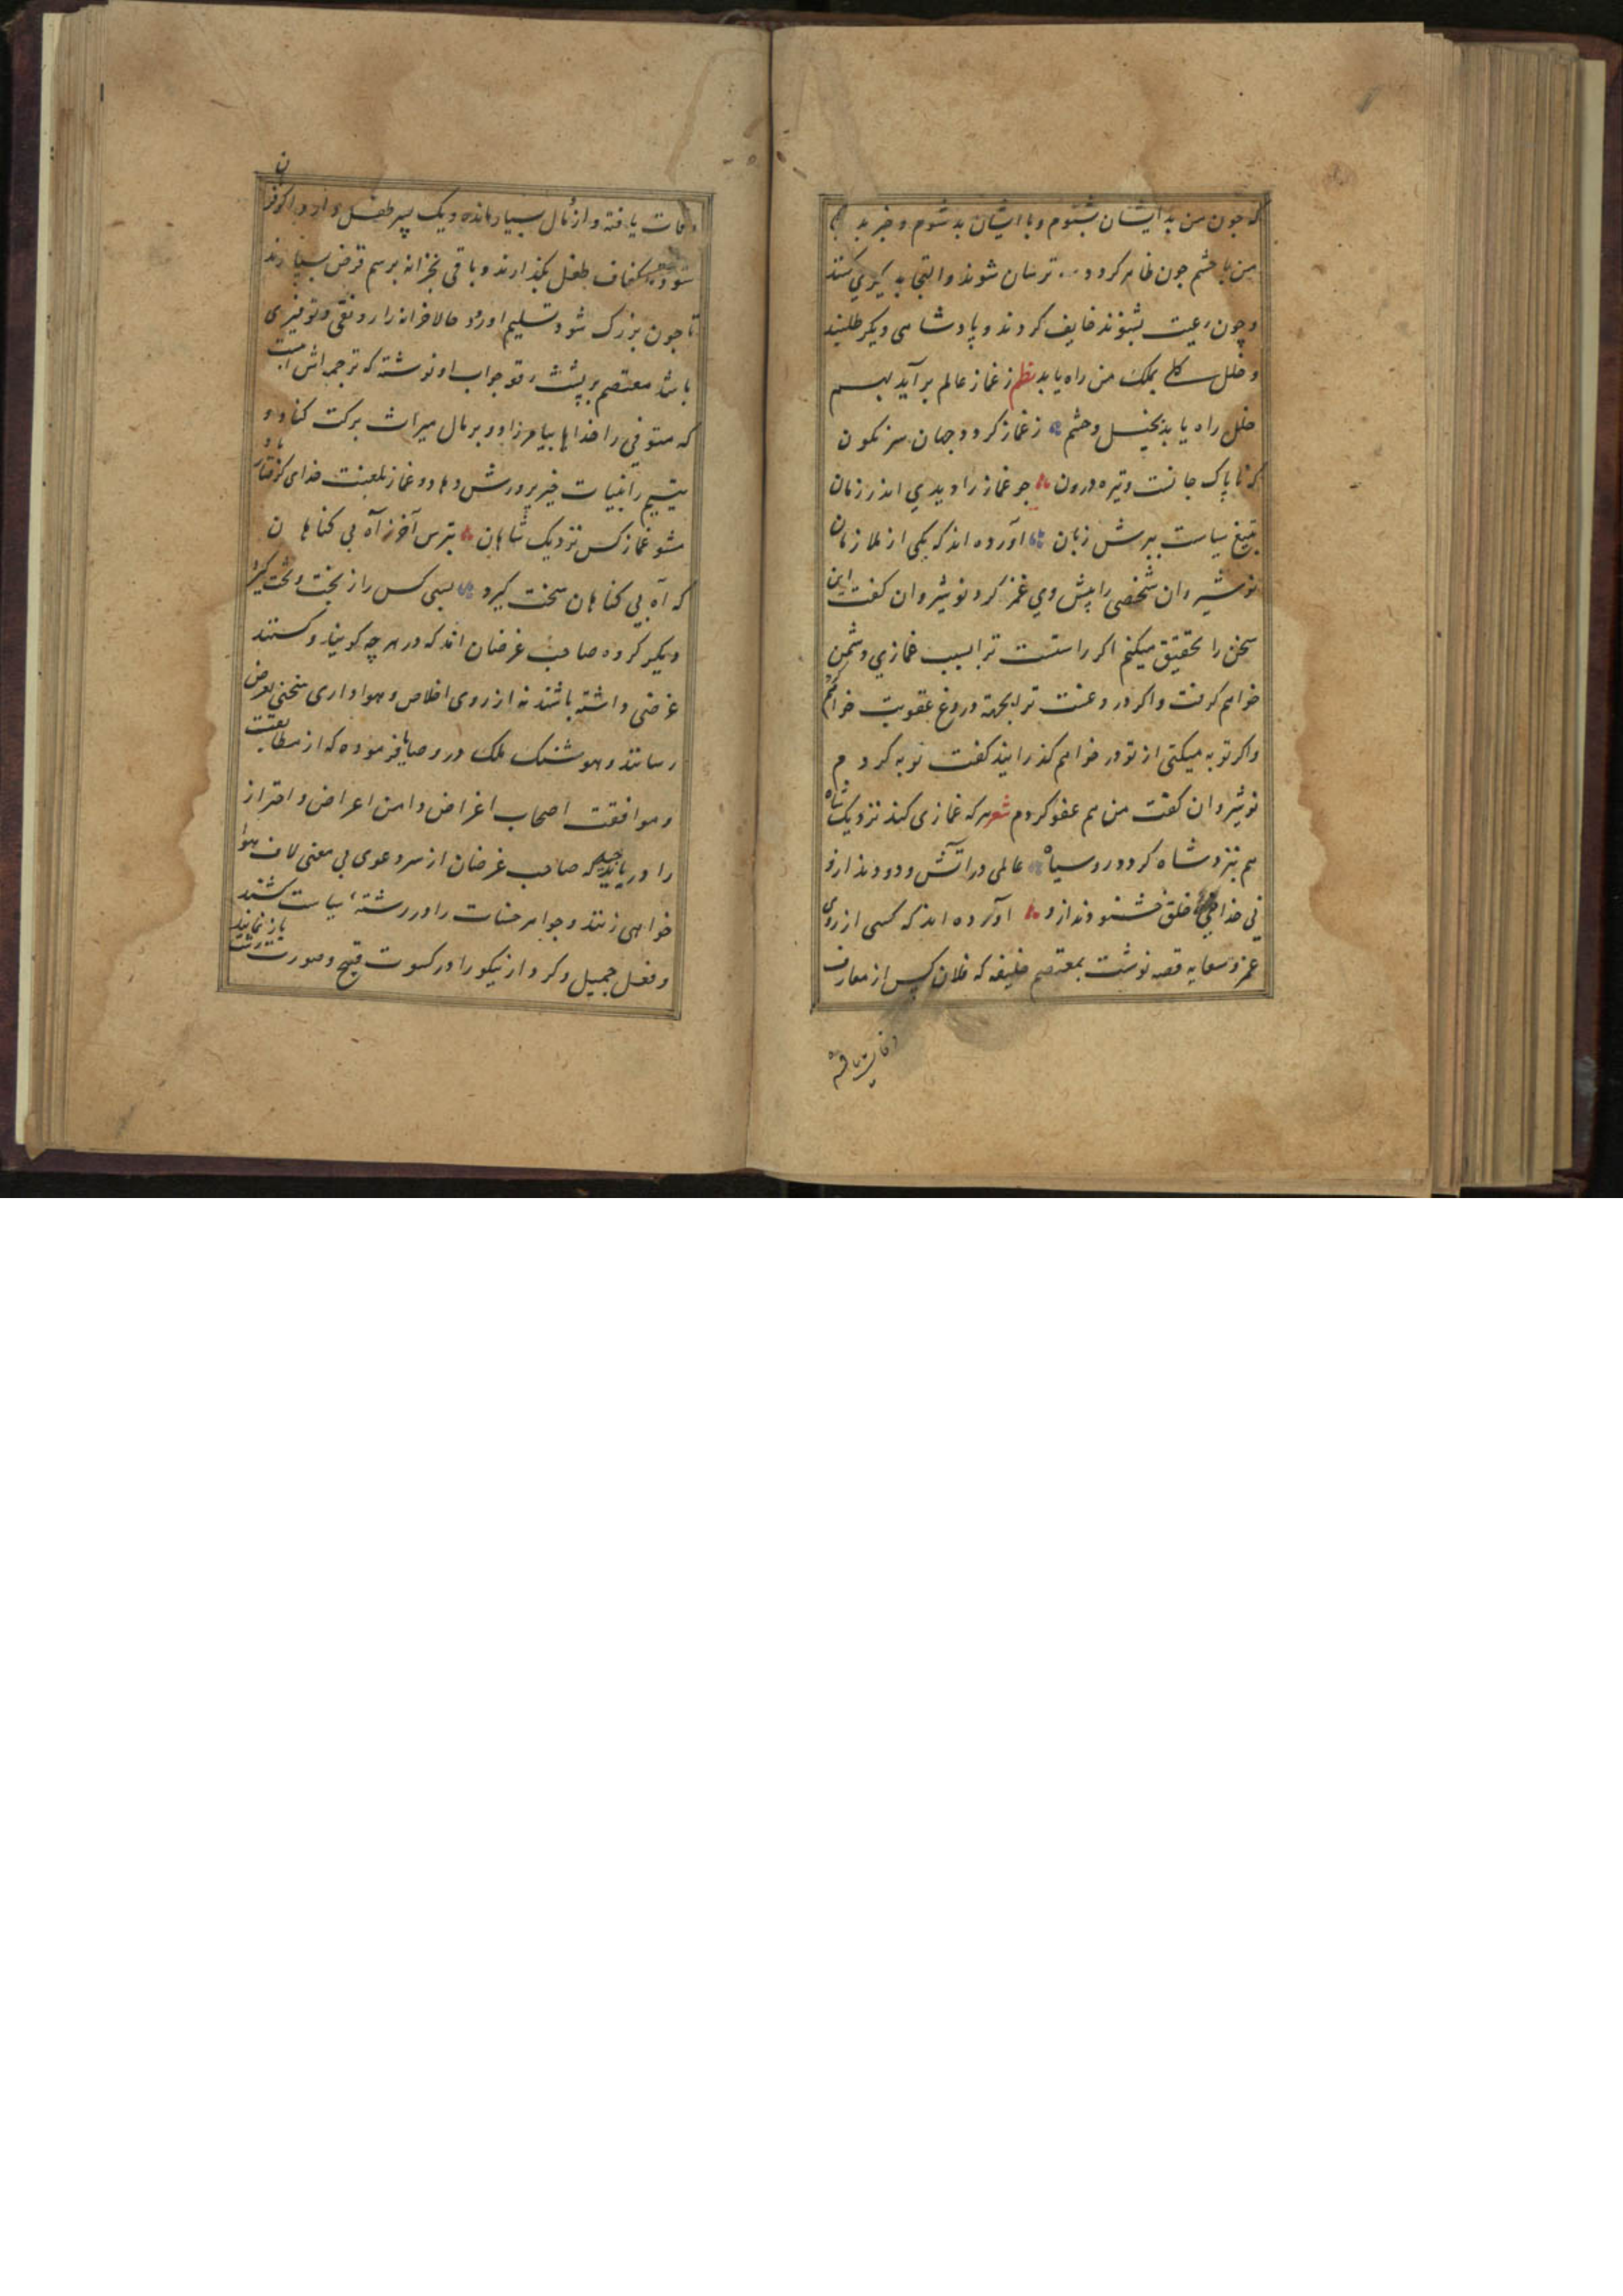 که چون من بد ایشان شنوم و با ایشان بد شوم و خبر بد
من با حشم چون ظاهر کردد ترسان شوند و التجا به کنند
و چون رعیت بشنوند خایف کردند و پادشاهی دیکر طلبند
و خلل کلی بملک من راه یابد نظم ز غماز عالم برآید بهم
خلل راه یابد بخیل و حشم ز غماز کردد جهان سرنکون
که ناپاک جانست و تیره درون چو غماز را دیدی اندر زمان
بتیغ سیاست ببرش زبان آورده اند که یکی از ملازمان
نوشیروان شخصی را پیش وی غمز کرد نوشیروان کفت این
سخن را تحقیق میکنم اکر راستست ترا بسبب غمازی دشمن
خواهم کرفت و اکر دروغست ترا بجهة دروغ عقوبت خواهم
و اکر توبه میکنی از تو در خواهم کذرانید کفت توبه کردم
نوشیروان کفت من هم عفو کردم شعر هر که غمازی کند نزدیک شاه
هم بنزد شاه کردد رو سیاه عالمی در آتش و دود اندازد
نی خدا خلق خشنودند ازو آورده اند که کسی از روی
غمز و سعایه قصه نوشت بمعتصم خلیفه که فلان کس از معارف
وفات یافته
وفات یافته و از مال بسیار مانده و یک پسر طفل دارد اکر فرمان
شود کفاف طفل بکذارند و باقی بخزانه برسم قرض بسپارند
تا چون بزرک شود تسلیم او رود حالا خزانه را رونقی و توفیری
باشد معتصم بر پشت رقعه جواب او نوشته که ترجمه اش اینست
که متوفی را خدا بیامرزاد و بر مال میراث برکت کناد و
یتیم را بنبات خیر پرورش دهاد و غماز بلعنت خدای کرفتار باد
مشو غماز کس نزدیک شاهان بترس آخر ز آه بی کناهان
که آه بی کناهان سخت کیرد بسی کس را ز بخت و تخت کیرد
دیکر کروه صاحب غرضان اند که در هر چه کویند و کنند
غرضی داشته باشند نه از روی اخلاص و هواداری سخنی بعرض
رسانند و هوشنک ملک در وصایا فرموده که از مطابقت
و موافقت اصحاب اغراض دامن اعراض و احتراز
را در باید چید که صاحب غرضان از سر دعوی بی معنی لاف هوا
خواهی زنند و جواهر حسنات را در رشته سیاست کشند
و فعل جمیل و کردار نیکو را در کسوت قبیح و صورت زشت باز نمایند